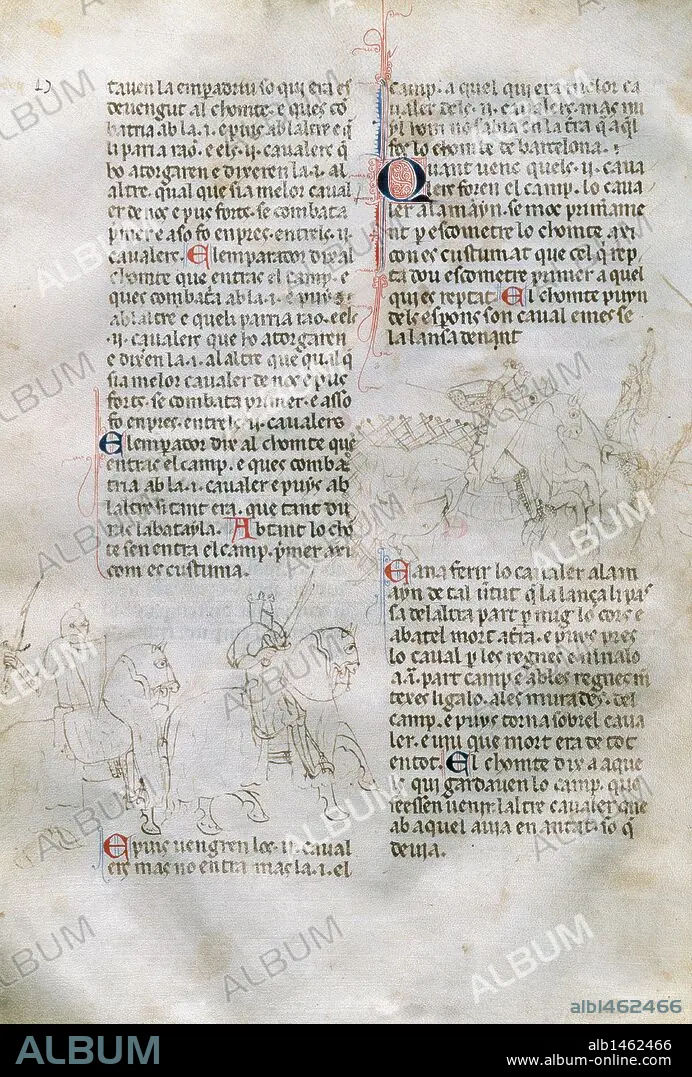 tauen la emꝑadriu so qui era es
deuengut al chomte · e ques cō
batria ab la · i · e puys ab laltre e q̄
li parria rao · e els · ii · caualers q̄
ho atorgaren e dixeren la · i · al
altre · qual que sia melor caual
er de nos e pus forts · se combata
pͥmer e aso fo enpres · entrels · ii ·
caualers · El emparador dix al
chomte que entras el camp · e
ques combata ab la · i · e puys
ab laltre e quel i parria rao · e els
· ii · caualers que ho atorgaren
e dixeren la · i · al altre que qual q̄
sia melor caualer de nos e pus
forts · se combata primer · e asso
fo enpres · entrels · ii · caualers
El emperador dix al chomte que
entras el camp · e ques combas
tria ab la · i · caualer e puys ab
laltre si tant era · que tant du
ras la batayla · Ab tant lo chō
te sen entra el camp · pͥmer axi
com es custuma ·
E puys uengren los · ii · caual
ers mas no entra mas la · i · el
camp · a quel qui era melor ca
ualer dels · ii · caualers · mas nu
yl hom no sabia en la tr̄a q̄ aq̄l
fos lo chomte de barcelona ·
Quant uenc quels · ii · caua
lers foren el camp · lo caua
ler alamayn · se moc primame
nt ꝑ escometre lo chomte · axi
con es custumat que cel q̄ rep
ta dou escometre primer a quel
qui es reptat · El chomte puyn
dels esperons son caual e mes se
la lansa denant
E ana ferir lo caualer alam
ayn de tal uirtut q̄ la lança li pa
sa delaltra part ꝑ mig lo cors e
abatel mort a tr̄a · e puys pres
lo caual ꝑ les regnes e mnalo
a · i̅ · part camp e ab les regnes m̄
texes ligalo · a les murades · del
camp · e puys torna sobrel caua
ler · e uiu que mort era de tot
en tot · El chomte dix a aque
ls qui gardauen lo camp · que
feessen uenir laltre caualer que
ab aquel auia en antat · so q̄
deuia ·
ALBUM
alb1462466
ALBUM
alb1462466
www.album-online.com